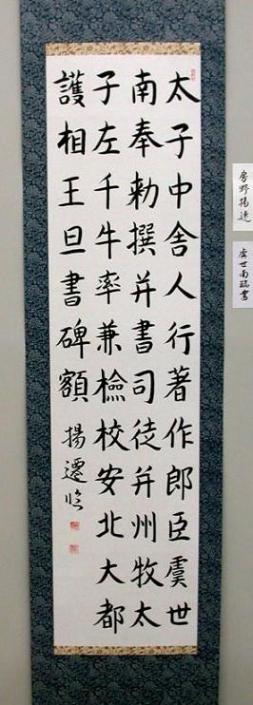 太子中舎人行著作郎臣虞世
南奉勅撰并書司徒并州牧太
子左千牛率兼檢校安北大都
護相王旦書碑額 揚遷臨
虞世南臨書